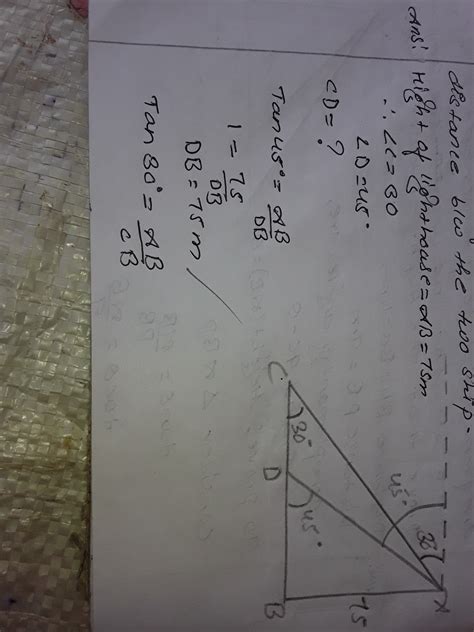 distance b/w the two ship-
Ans: Hight of lighthouse = AB = 75m
∴ ∠C = 30
∠D = 45°
CD = ?
Tan 45° = AB/DB
1 = 75/DB
DB = 75m
Tan 30° = AB/CB
A
30
45°
C
30°
D
45°
B
75